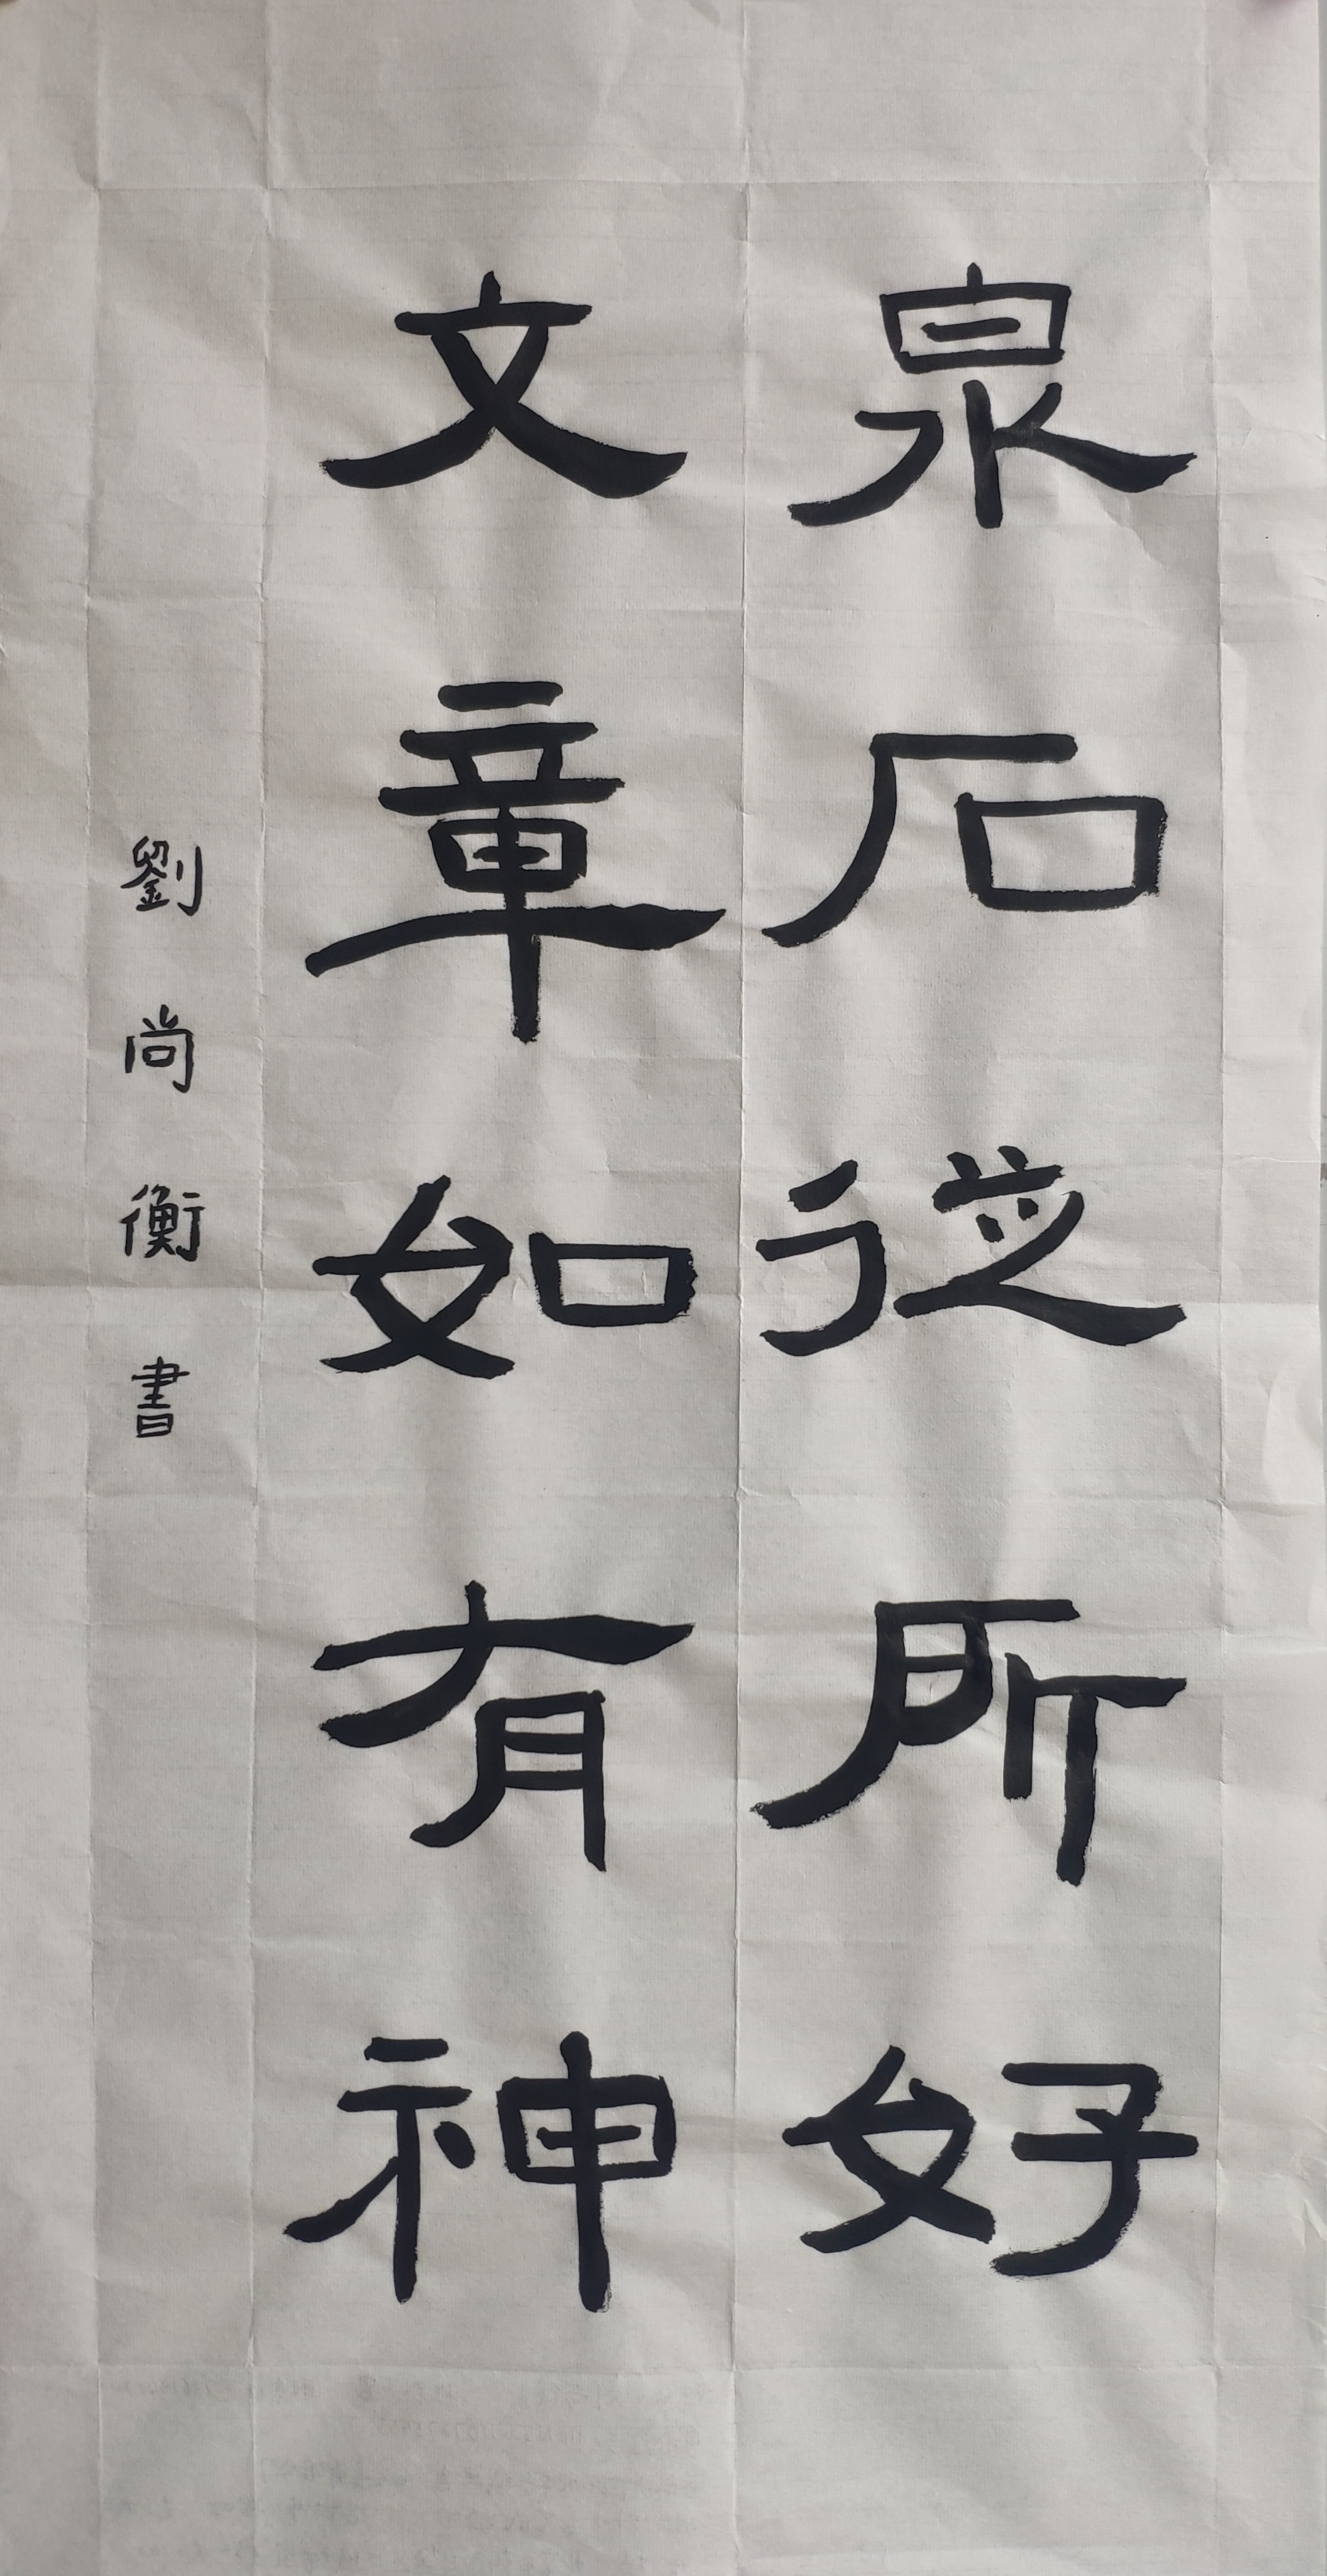 泉石從所好
文章如有神
劉尚衡書